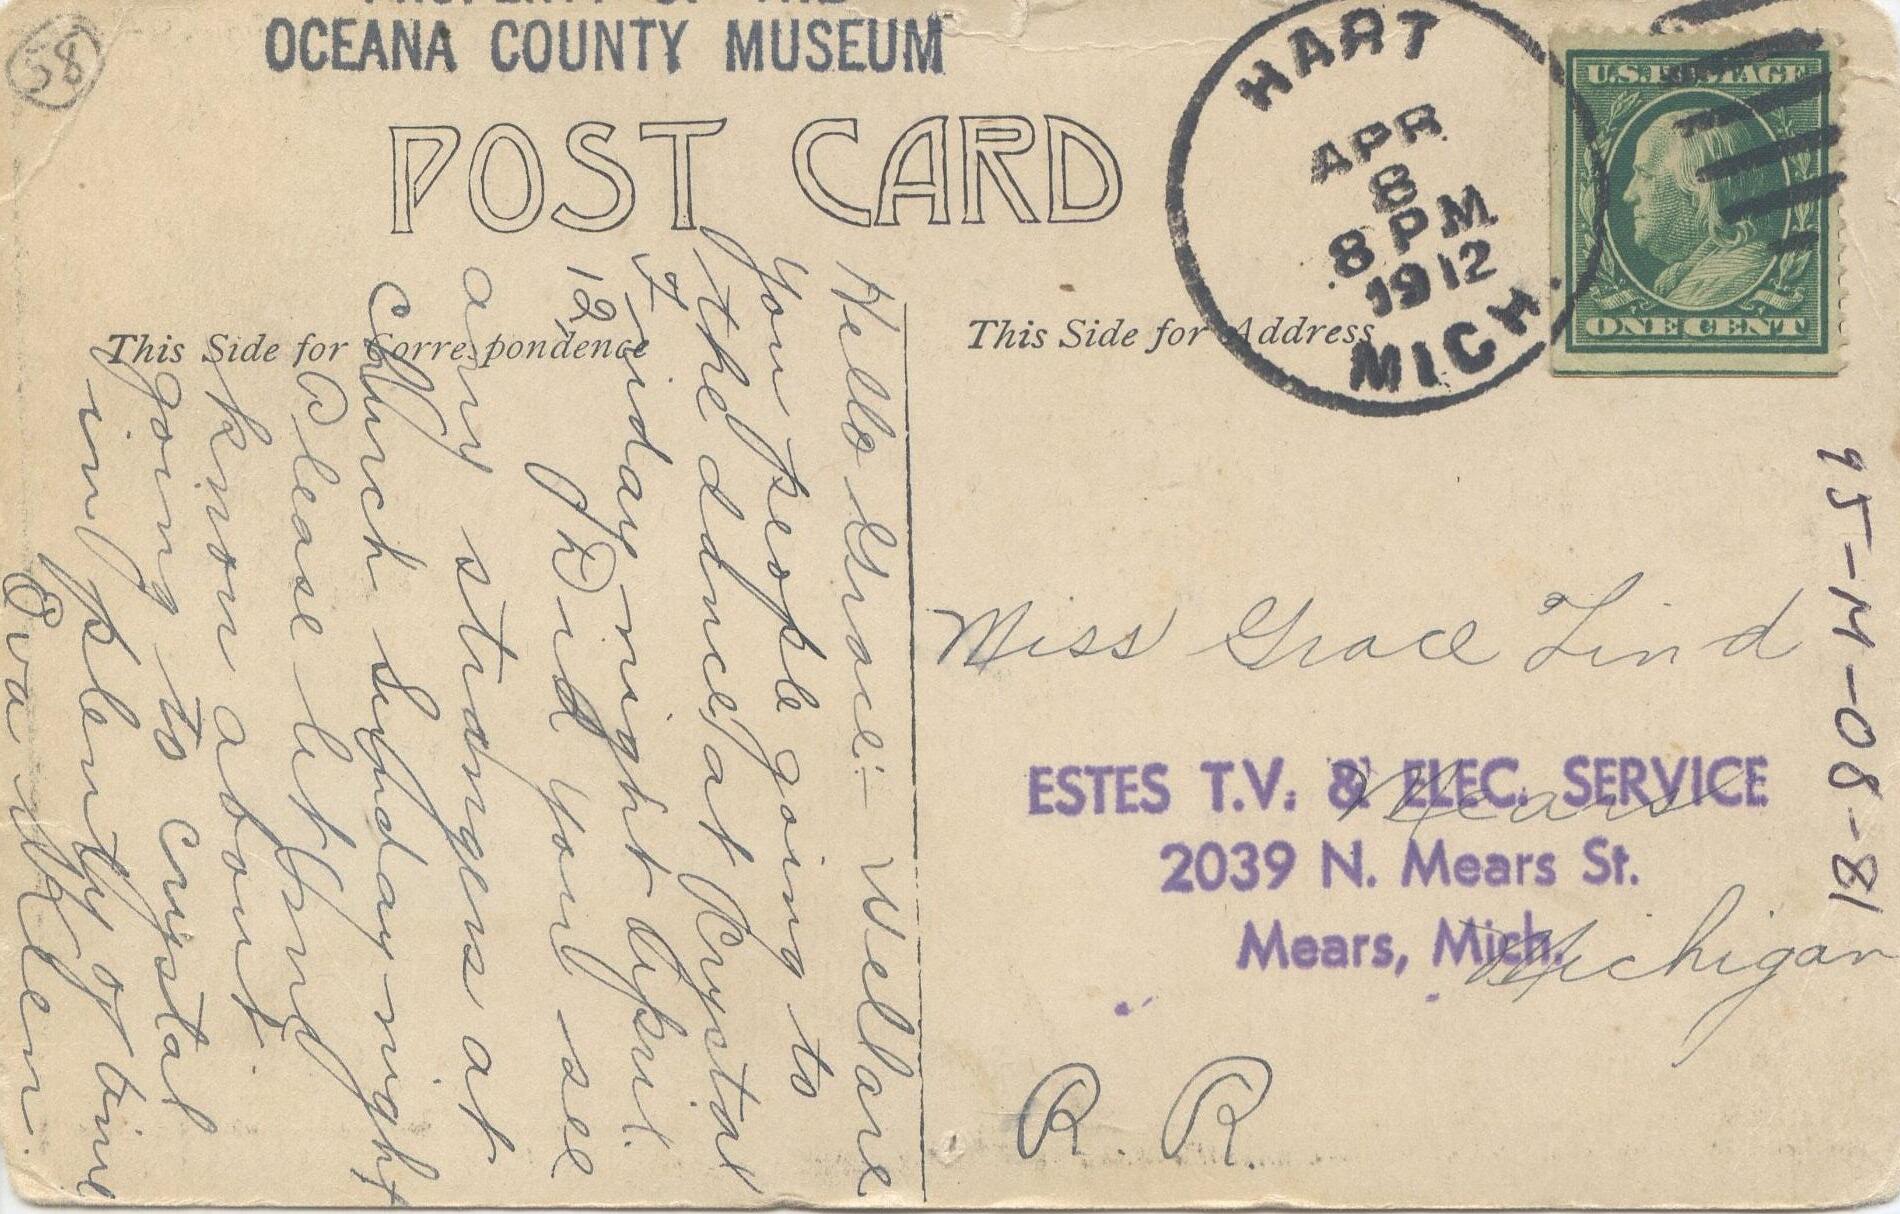 58
PROPERTY OF THE
OCEANA COUNTY MUSEUM
POST CARD
HART
APR
8
8 PM
1912
MICH.
U.S. POSTAGE
ONE CENT
This Side for Correspondence
This Side for Address
Hello Grace:- Well are
you people going to
the dance at Crystal
Friday night April
12, Did you see
any strangers at
Church Sunday night
Please let me
know about
going to Crystal
in plenty of time
Eva
Miss Grace Lind
Mears
Michigan
R. R.
ESTES T.V. & ELEC. SERVICE
2039 N. Mears St.
Mears, Mich.
95-M-08-81